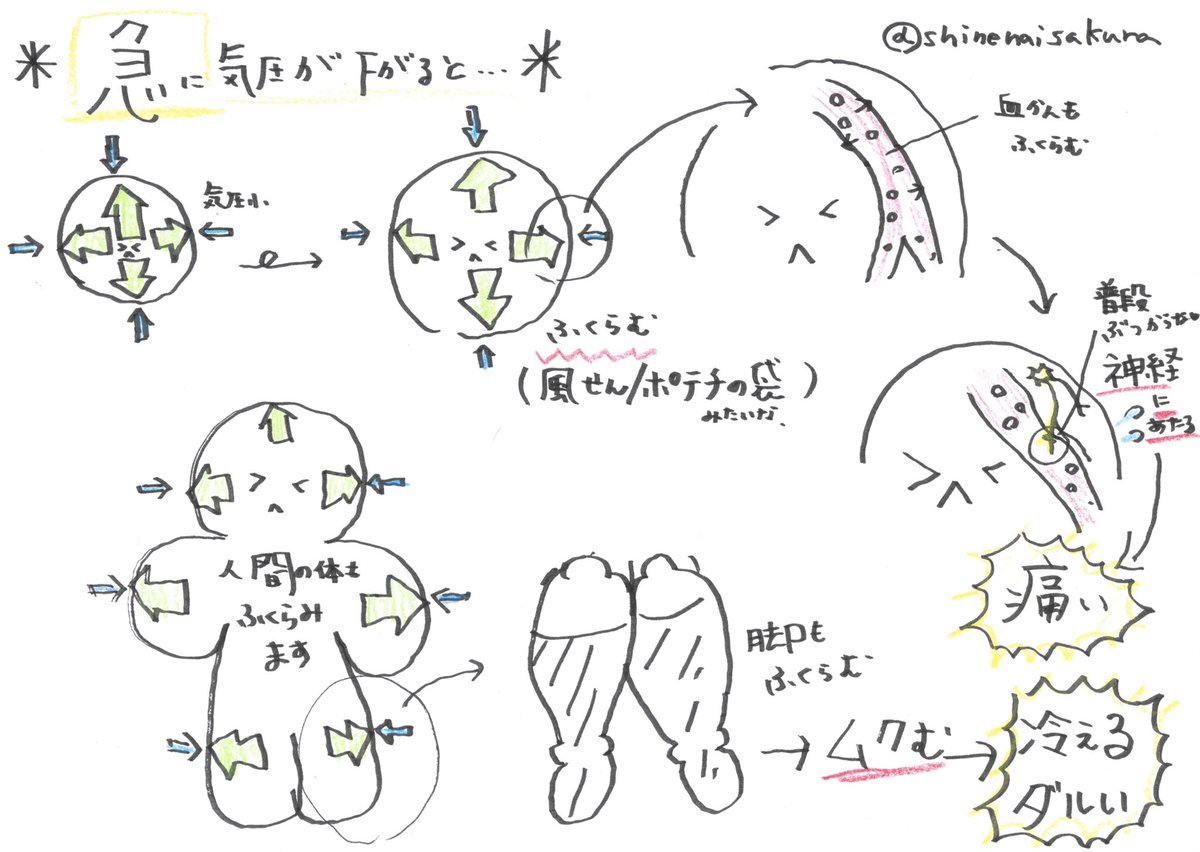 @shinenaisakura
*急に気圧が下がると…*
気圧小
ふくらむ
(風せん/ポテチの袋)
みたいな
血かんも
ふくらむ
普段
ぶつからない
神経
に
あたる
痛い
人間の体も
ふくらみ
ます
脚も
ふくらむ
ムクむ
冷える
ダルい